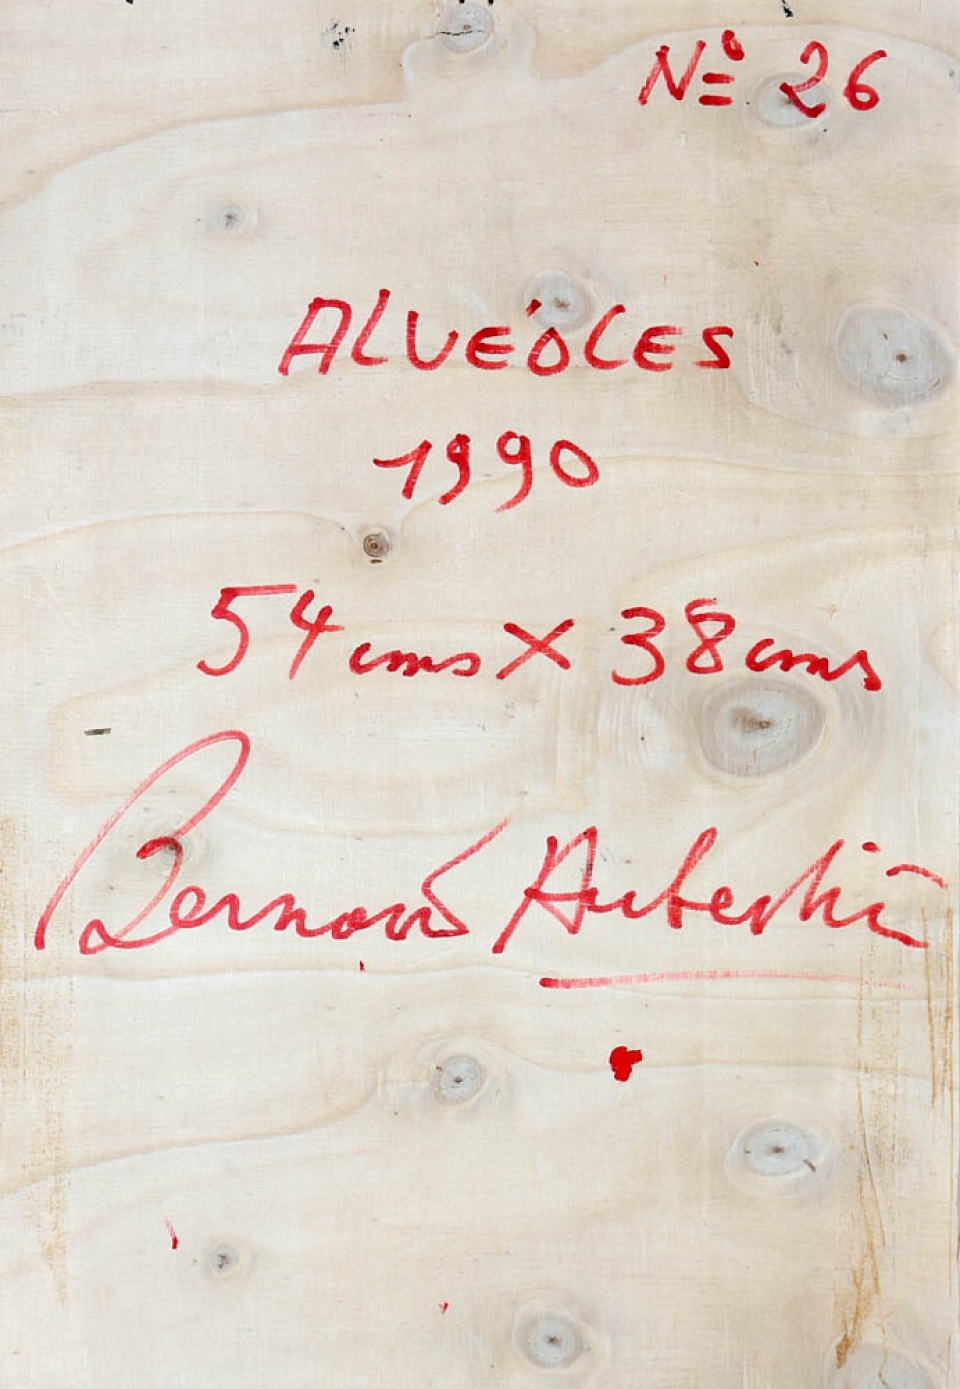 Nº 26
ALVÉOLES
1990
54 cms X 38 cms
Bernard Aubertin